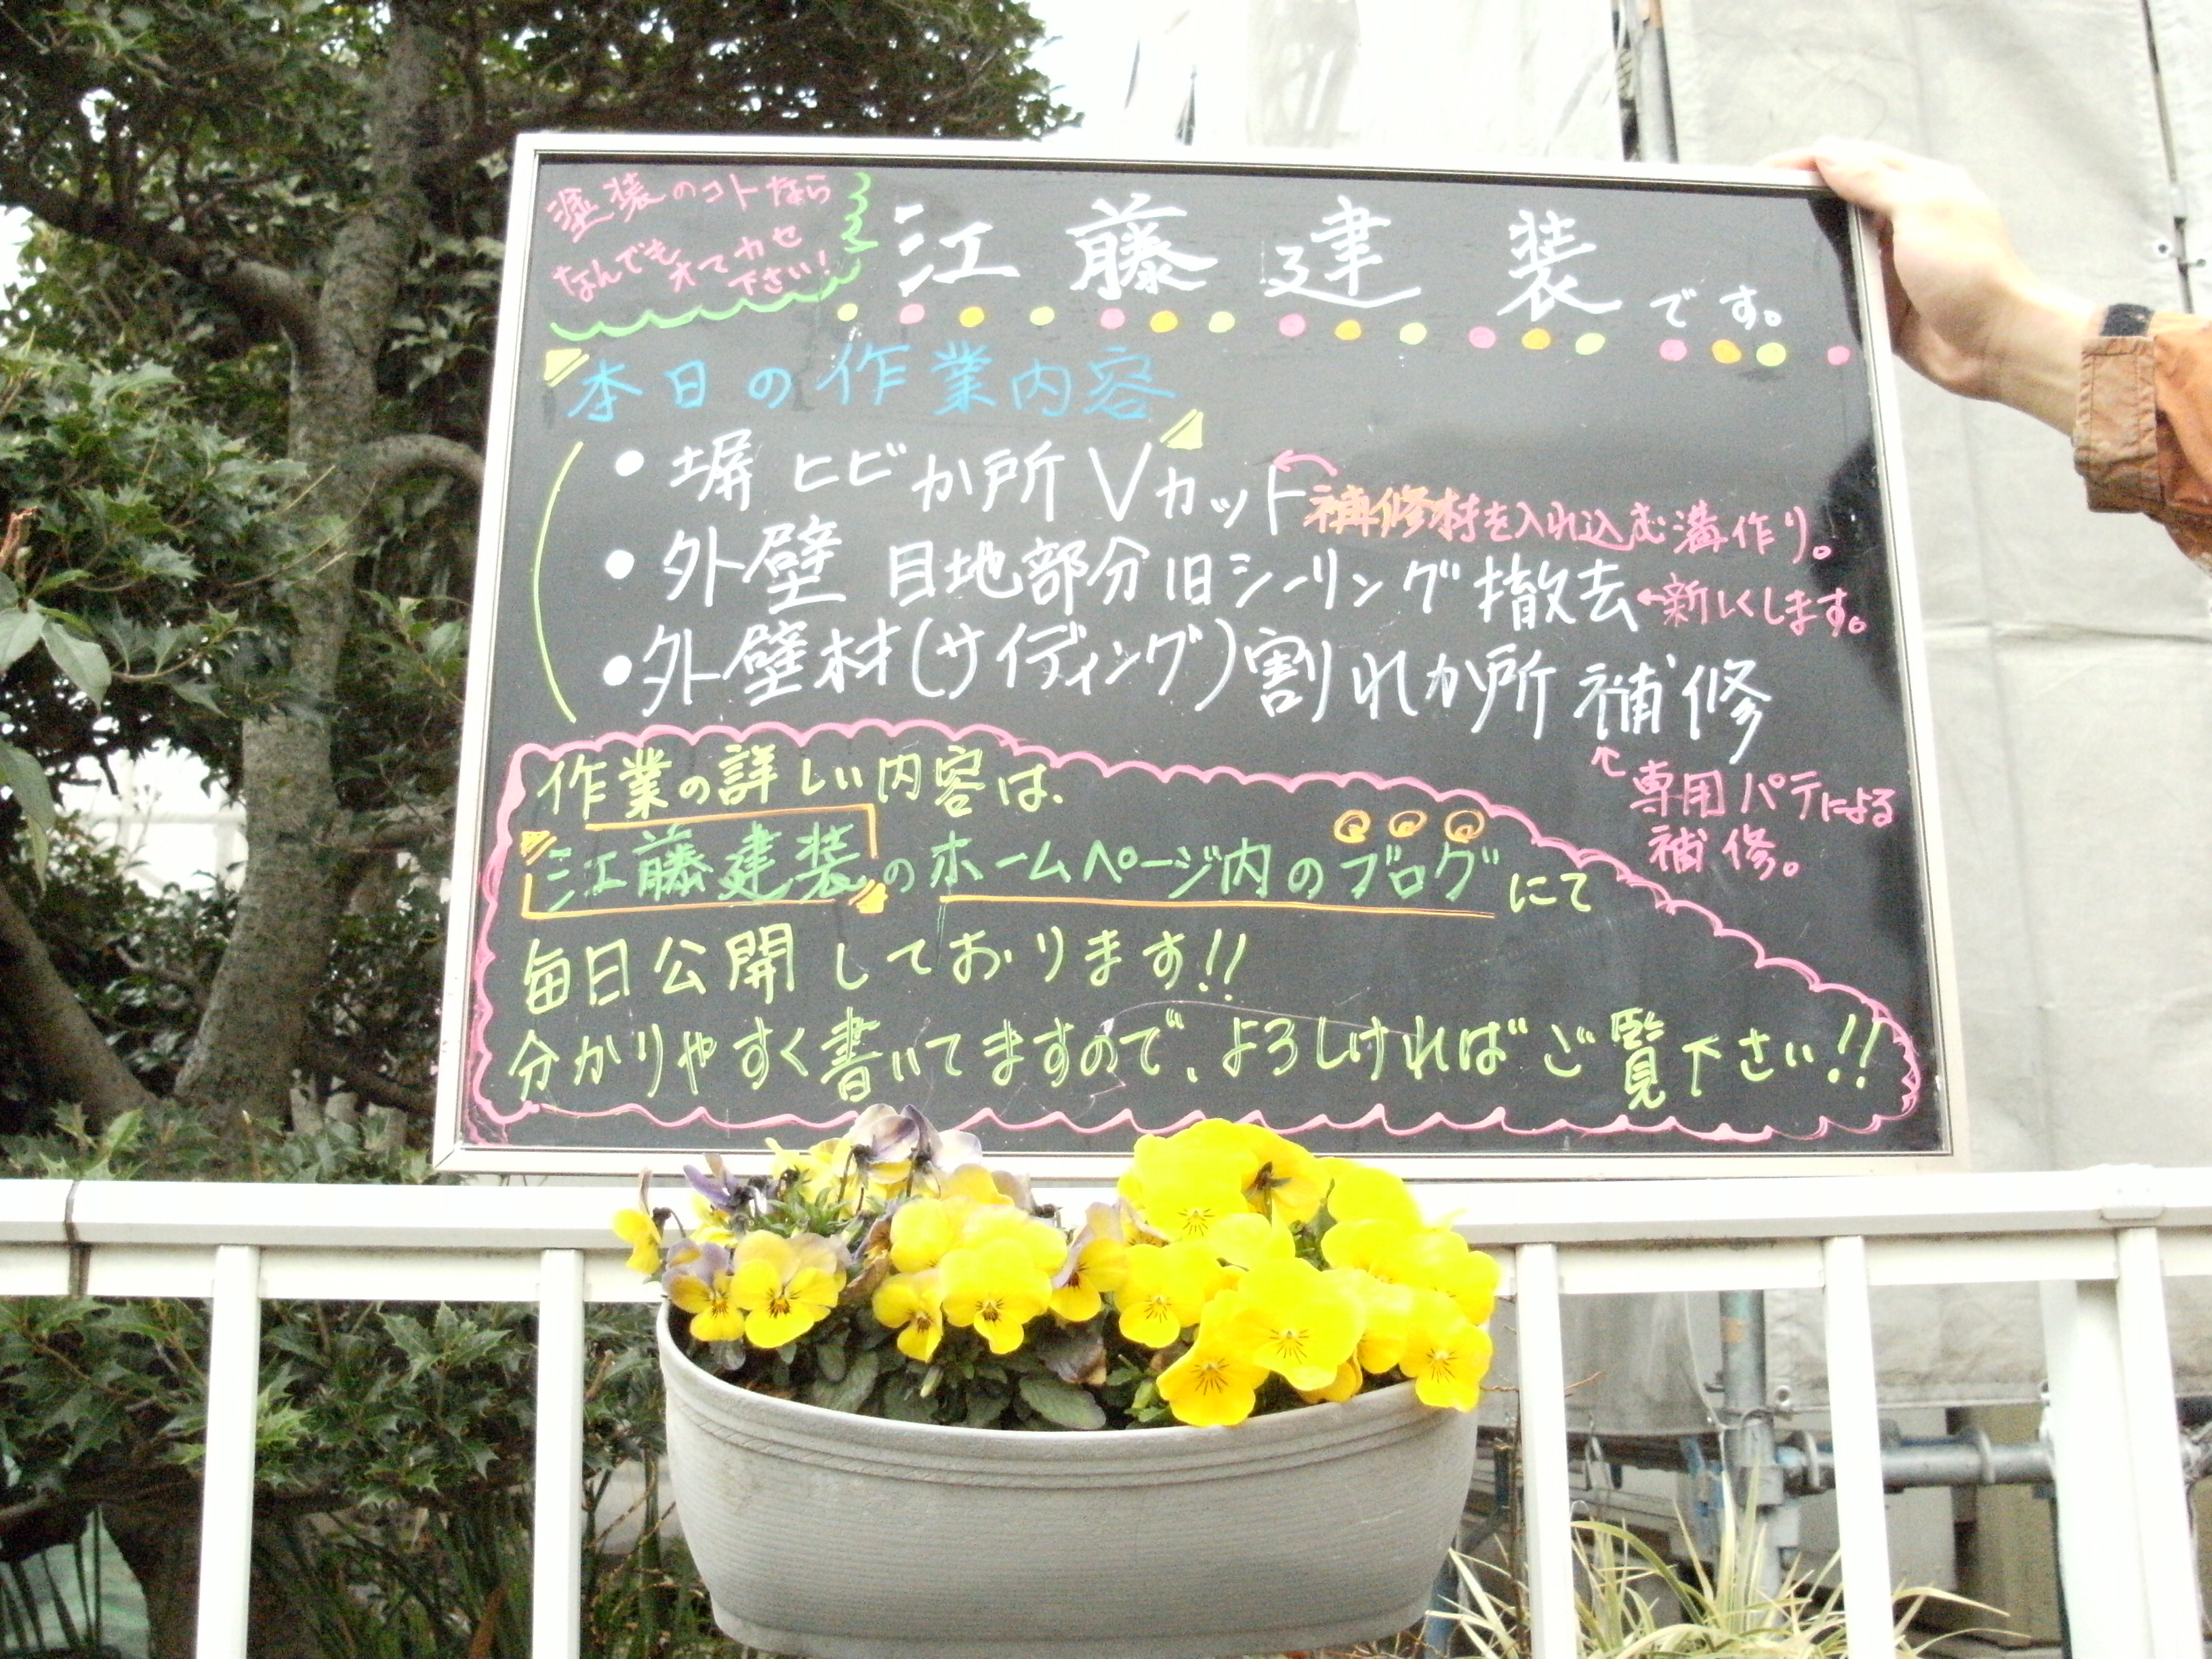 塗装のコトなら
なんでも
オマカセ
下さい!
江藤建装です。
本日の作業内容
・塀 ヒビか所 Vカット
補修材を入れ込む溝作り。
・外壁 目地部分旧シーリング撤去
←新しくします。
・外壁材(サイディング)割れか所 補修
↑専用パテによる
補修。
作業の詳しい内容は、
江藤建装のホームページ内のブログにて
毎日公開しております!!
分かりやすく書いてますので、よろしければご覧下さい!!